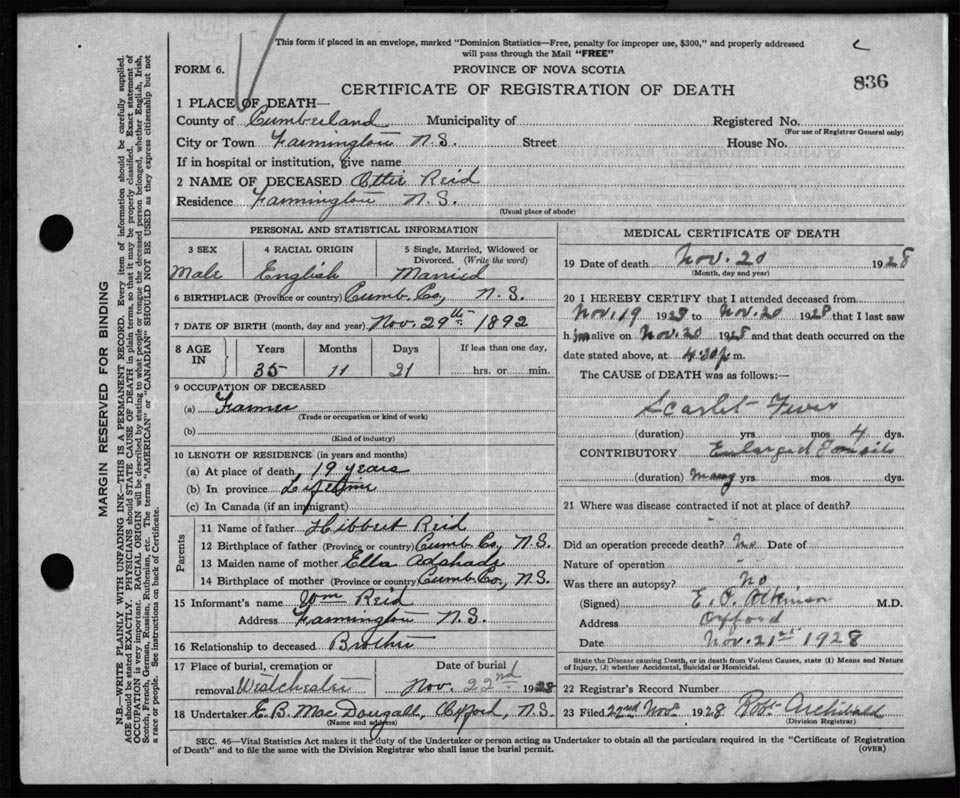 This form if placed in an envelope, marked "Dominion Statistics—Free, penalty for improper use, $300," and properly addressed
will pass through the Mail "FREE"
FORM 6.
PROVINCE OF NOVA SCOTIA
836
CERTIFICATE OF REGISTRATION OF DEATH
1 PLACE OF DEATH—
County of Cumberland Municipality of Registered No.
(For use of Registrar General only)
City or Town Farmington N.S. Street House No.
If in hospital or institution, give name
2 NAME OF DECEASED Reid
Residence Farmington N.S.
(Usual place of abode)
PERSONAL AND STATISTICAL INFORMATION
3 SEX 4 RACIAL ORIGIN 5 Single, Married, Widowed or
Divorced. (Write the word)
Male English Married
6 BIRTHPLACE (Province or country) Cumb. Co., N.S.
7 DATE OF BIRTH (month, day and year) Nov. 29th 1892
8 AGE IN Years Months Days If less than one day,
35 11 21 hrs. or min.
9 OCCUPATION OF DECEASED
(a) Farmer
(Trade or occupation or kind of work)
(b)
(Kind of industry)
10 LENGTH OF RESIDENCE (in years and months)
(a) At place of death 19 years
(b) In province Lifetime
(c) In Canada (if an immigrant)
Parents
11 Name of father Hibbert Reid
12 Birthplace of father (Province or country) Cumb. Co., N.S.
13 Maiden name of mother Ella
14 Birthplace of mother (Province or country) Cumb. Co., N.S.
15 Informant's name Wm Reid
Address Farmington N.S.
16 Relationship to deceased Brother
17 Place of burial, cremation or Date of burial
removal Westchester Nov. 22nd 1928
18 Undertaker E. B. MacDougall, Oxford, N.S.
(Name and address)
MEDICAL CERTIFICATE OF DEATH
19 Date of death Nov. 20 1928
(Month, day and year)
20 I HEREBY CERTIFY that I attended deceased from
Nov. 19 1928 to Nov. 20 1928 that I last saw
him alive on Nov. 20 1928 and that death occurred on the
date stated above, at 4.30 p m.
The CAUSE of DEATH was as follows:—
Scarlet Fever
(duration) yrs mos 4 dys.
CONTRIBUTORY Enlarged Tonsils
(duration) many yrs mos. dys.
21 Where was disease contracted if not at place of death?
Did an operation precede death? No Date of
Nature of operation
Was there an autopsy? No
(Signed) E. C. Atkinson M.D.
Address Oxford
Date Nov. 21st 1928
State the Disease causing Death, or in death from Violent Causes, state (1) Means and Nature
of Injury, (2) whether Accidental, Suicidal or Homicidal.
22 Registrar's Record Number
23 Filed 22nd Nov. 1928 Robt Archibald
(Division Registrar)
SEC. 46—Vital Statistics Act makes it the duty of the Undertaker or person acting as Undertaker to obtain all the particulars required in the "Certificate of Registration
of Death" and to file the same with the Division Registrar who shall issue the burial permit.
(OVER)
MARGIN RESERVED FOR BINDING
N.B.—WRITE PLAINLY WITH UNFADING INK—THIS IS A PERMANENT RECORD. Every item of information should be carefully supplied.
AGE should be stated EXACTLY. PHYSICIANS should STATE CAUSE OF DEATH in plain terms, so that it may be properly classified. Exact statement of
OCCUPATION is very important. RACIAL ORIGIN will be described by stating to what people or tongue the deceased person belonged, whether English, Irish,
Scotch, French, German, Russian, Ruthenian, etc. The terms "AMERICAN" or "CANADIAN" SHOULD NOT BE USED as they express citizenship but not
a race or people. See instructions on back of Certificate.